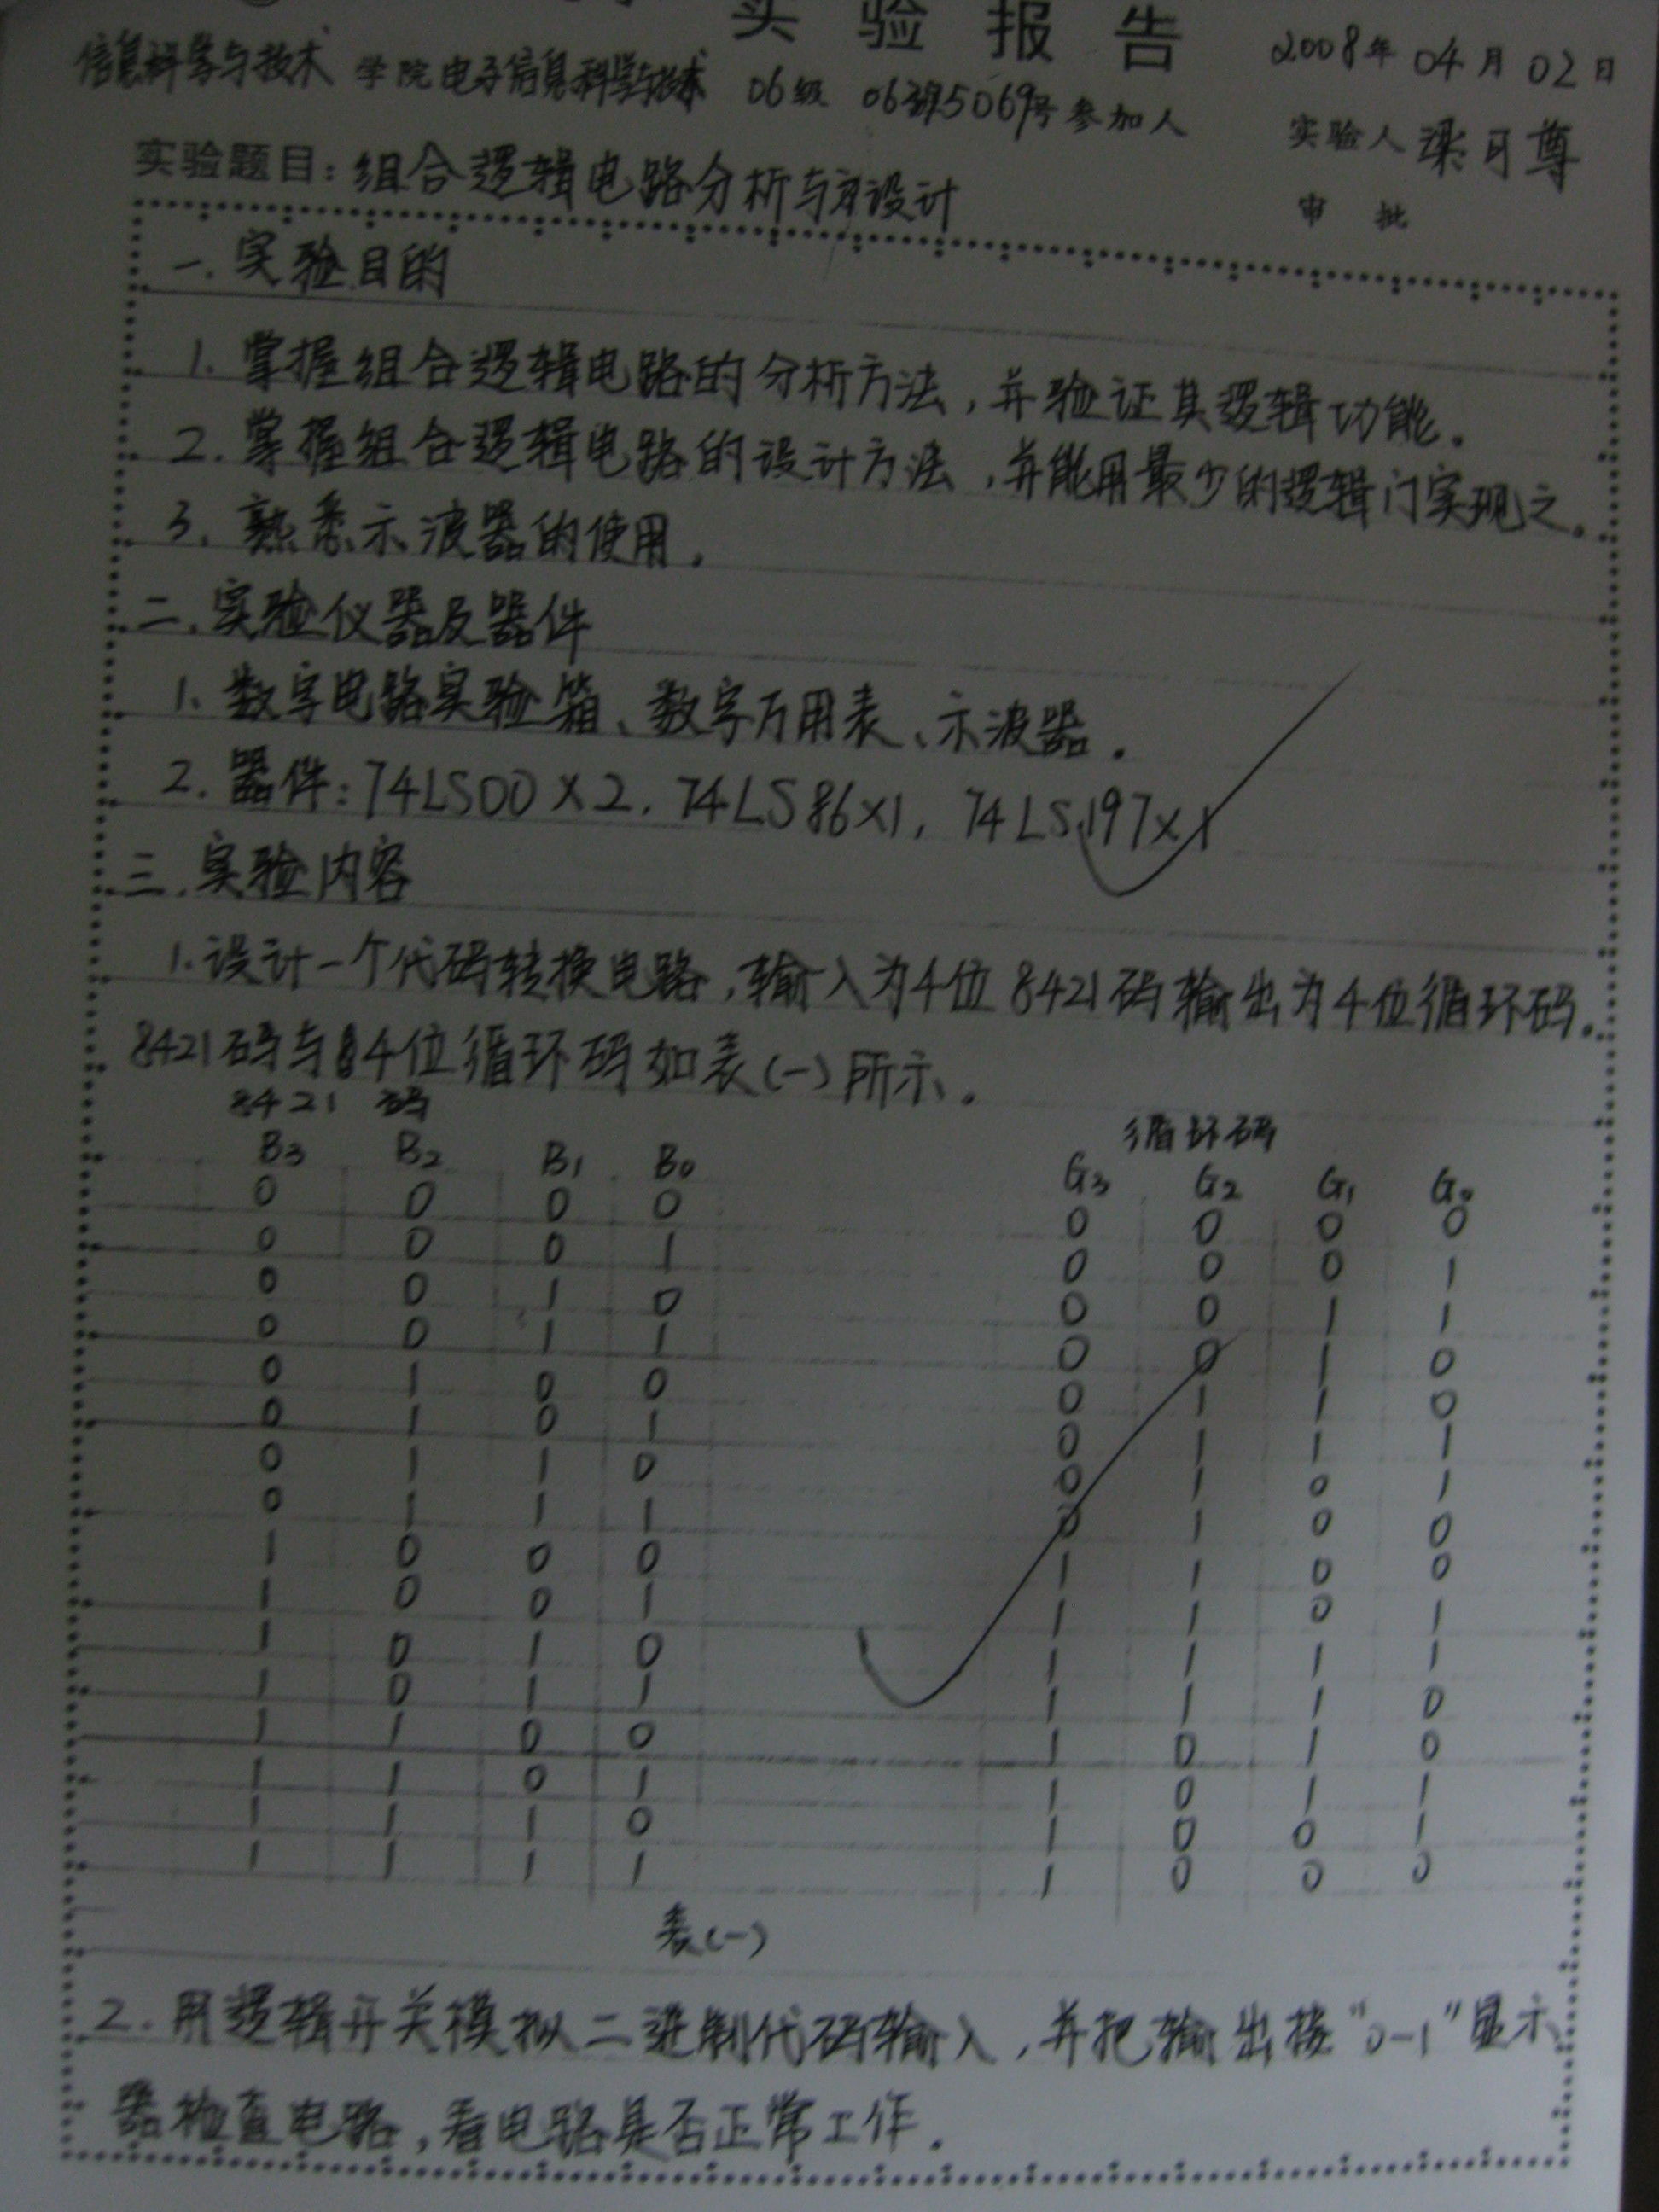 实验报告
2008年04月02日
信息科学与技术 学院 电子信息科学与技术 06级 06班5069号 参加人
实验人 梁可尊
审 批
实验题目：组合逻辑电路分析与设计
一.实验目的
1.掌握组合逻辑电路的分析方法，并验证其逻辑功能。
2.掌握组合逻辑电路的设计方法，并能用最少的逻辑门实现之。
3.熟悉示波器的使用。
二.实验仪器及器件
1.数字电路实验箱、数字万用表、示波器。
2.器件：74LS00×2. 74LS86×1, 74LS197×1
三.实验内容
1.设计一个代码转换电路，输入为4位8421码输出为4位循环码。
8421码与4位循环码如表(一)所示。
8421 码 循环码
B3 B2 B1 B0 G3 G2 G1 G0
0 0 0 0 0 0 0 0
0 0 0 1 0 0 0 1
0 0 1 0 0 0 1 1
0 0 1 1 0 0 1 0
0 1 0 0 0 1 1 0
0 1 0 1 0 1 1 1
0 1 1 0 0 1 0 1
0 1 1 1 0 1 0 0
1 0 0 0 1 1 0 0
1 0 0 1 1 1 0 1
1 0 1 0 1 1 1 1
1 0 1 1 1 1 1 0
1 1 0 0 1 0 1 0
1 1 0 1 1 0 1 1
1 1 1 0 1 0 0 1
1 1 1 1 1 0 0 0
表(一)
2.用逻辑开关模拟二进制代码输入，并把输出接“0-1”显示
器检查电路，看电路是否正常工作.